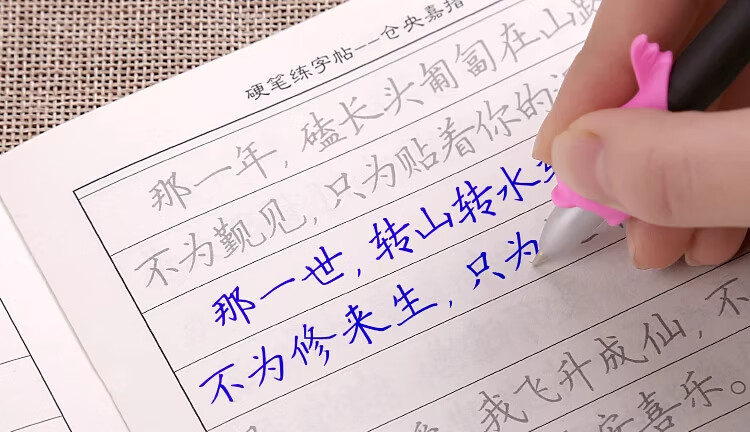 硬笔练字帖--仓央嘉措
那一年,磕长头匍匐在山路
不为觐见,只为贴着你的
那一世,转山转水
不为修来生,只为
我飞升成仙,不
喜乐。